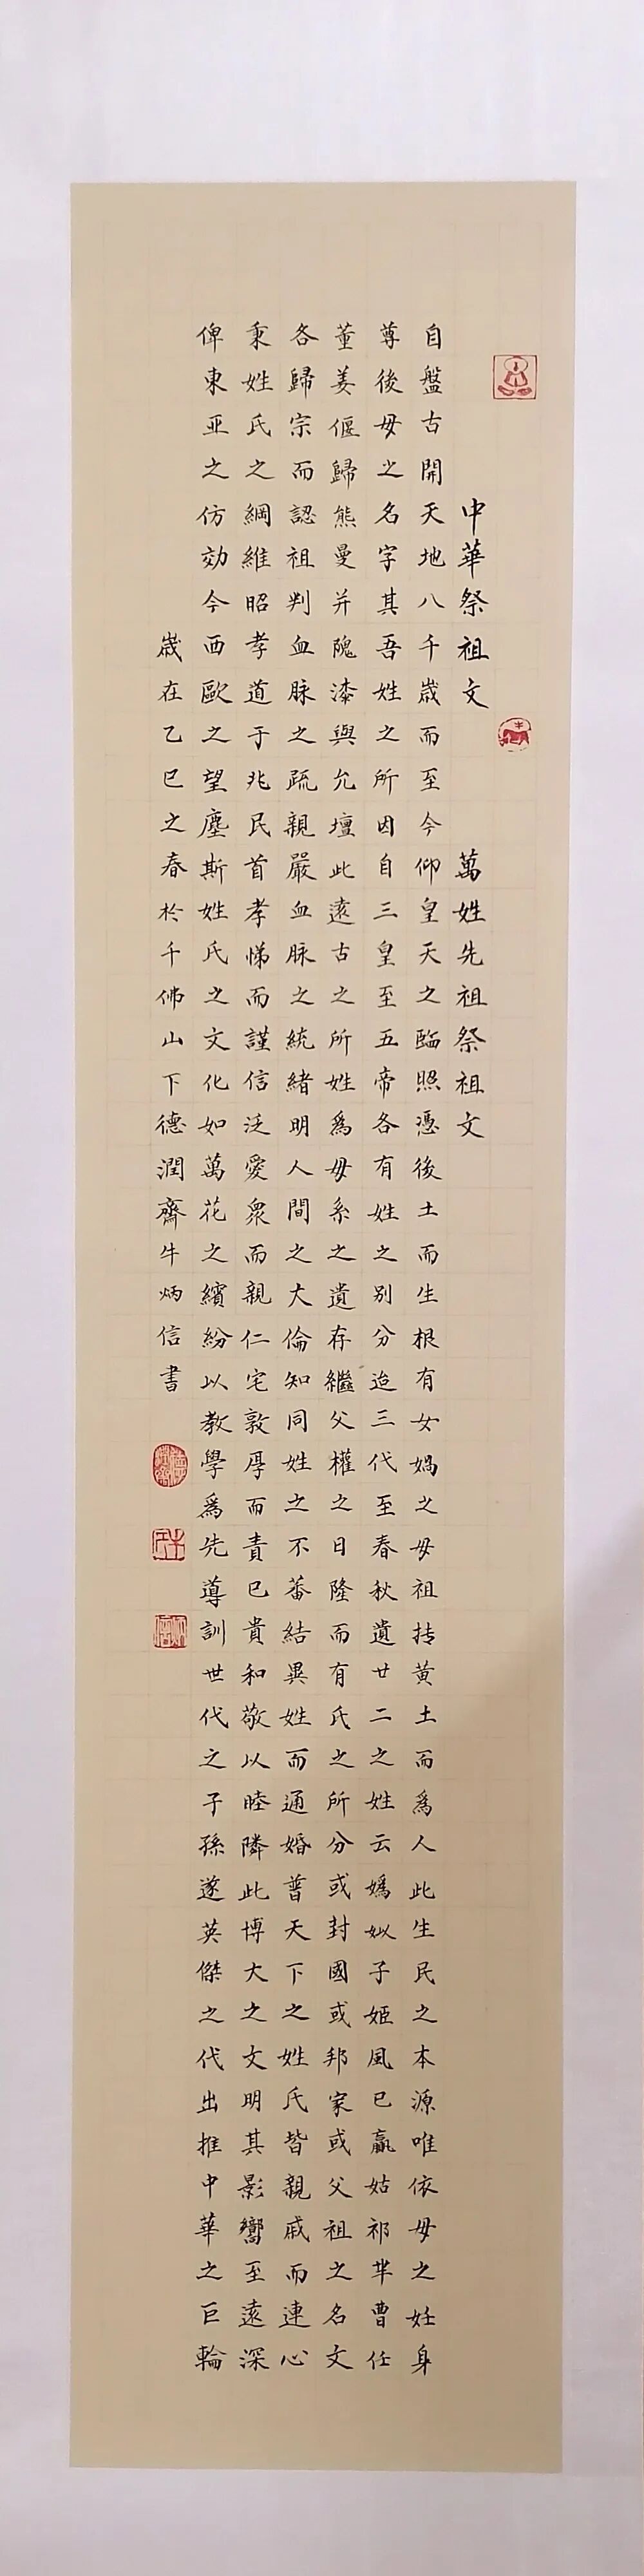 中華祭祖文 萬姓先祖祭祖文
自盤古開天地八千歲而至今仰皇天之臨照憑後土而生根有女媧之母祖摶黃土而爲人此生民之本源唯依母之妊身
尊後母之名字其吾姓之所因自三皇至五帝各有姓之別分迨三代至春秋遺廿二之姓云嬀姒子姬風已嬴姑祁芈曹任
董姜偃歸熊曼并隗漆與允壇此遠古之所姓爲母系之遺存繼父權之日隆而有氏之所分或封國或邦家或父祖之名文
各歸宗而認祖判血脉之疏親嚴血脉之統緒明人間之大倫知同姓之不蕃結異姓而通婚普天下之姓氏皆親戚而連心
秉姓氏之綱維昭孝道于兆民首孝悌而謹信泛愛衆而親仁宅敦厚而責已貴和敬以睦隣此博大之文明其影嚮至遠深
俾東亚之仿効今西歐之望塵斯姓氏之文化如萬花之繽紛以教學爲先導訓世代之子孫遂英傑之代出推中華之巨輪
歲在乙巳之春於千佛山下德潤齋牛炳信書